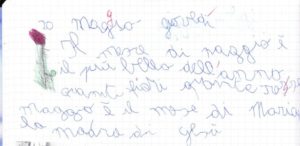 20 maggio giovedì
Il mese di maggio è
il più bello dell'anno
quanti fiori quanta
maggio è il mese di Maria
la madre di gesù